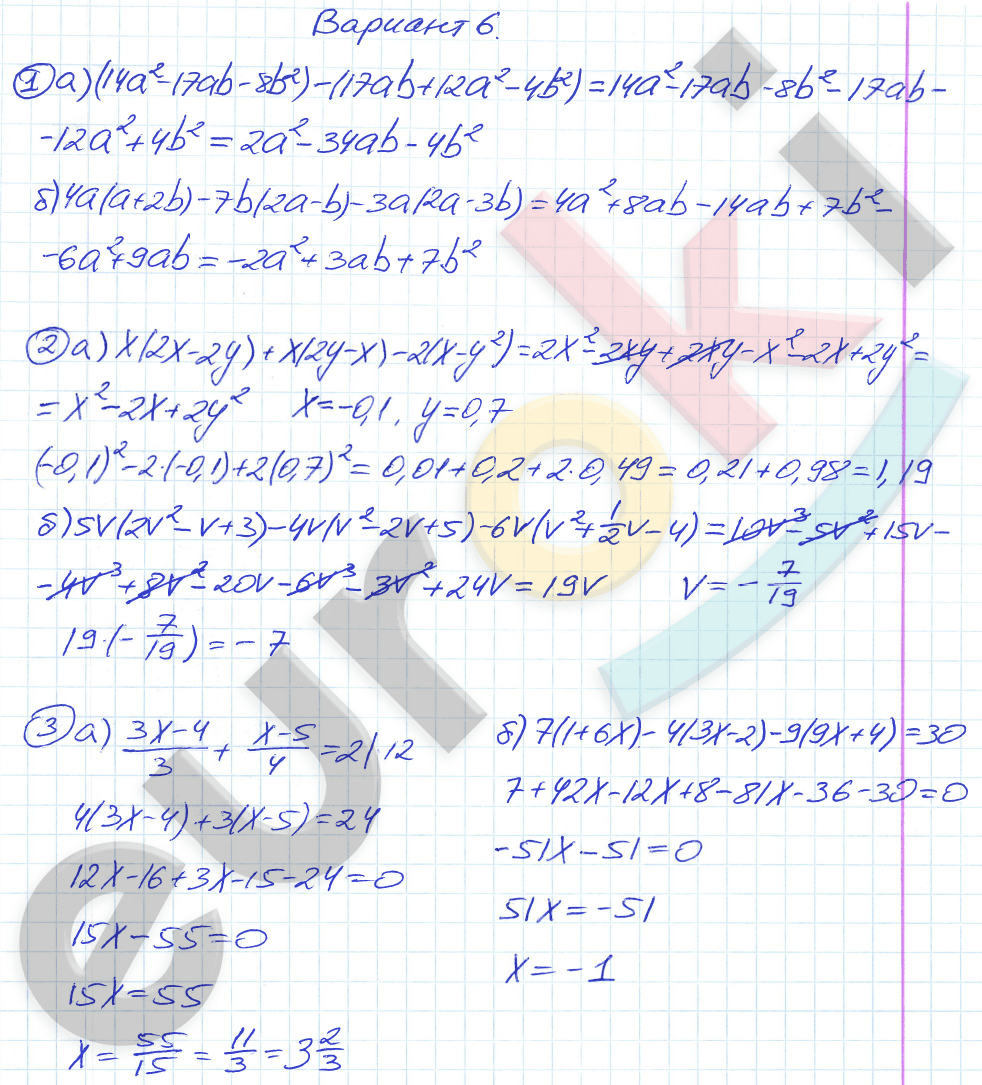 Вариант 6.
① а) (14a²-17ab-8b²)-(17ab+12a²-4b²)=14a²-17ab-8b²-17ab-
-12a²+4b²=2a²-34ab-4b²
б) 4a(a+2b)-7b(2a-b)-3a(2a-3b)=4a²+8ab-14ab+7b²-
-6a²+9ab=-2a²+3ab+7b²
② а) x(2x-2y)+x(2y-x)-2(x-y²)=2x²-2xy+2xy-x²-2x+2y²=
=x²-2x+2y² x=-0,1, y=0,7
(-0,1)²-2·(-0,1)+2(0,7)²=0,01+0,2+2·0,49=0,21+0,98=1,19
б) 5v(2v²-v+3)-4v(v²-2v+5)-6v(v²+1/2v-4)=10v³-5v²+15v-
-4v³+8v²-20v-6v³-3v²+24v=19v v=-7/19
19·(-7/19)=-7
③ а) (3x-4)/3+(x-5)/4=2|12
4(3x-4)+3(x-5)=24
12x-16+3x-15-24=0
15x-55=0
15x=55
x=55/15=11/3=3 2/3
б) 7(1+6x)-4(3x-2)-9(9x+4)=30
7+42x-12x+8-81x-36-30=0
-51x-51=0
51x=-51
x=-1
euroki